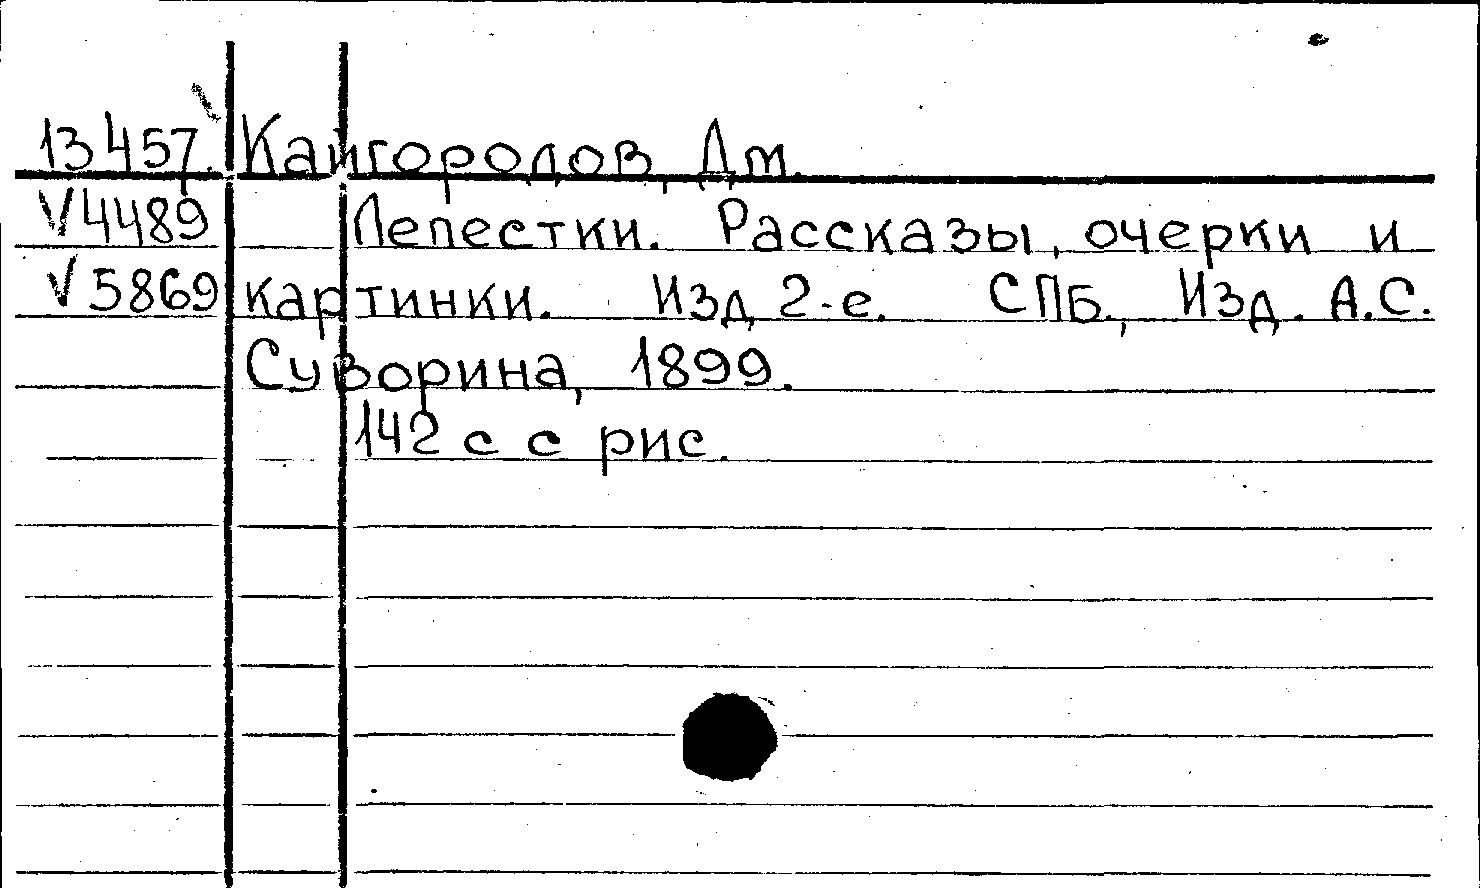 13457. Кайгородов, Дм.
V4489 Лепестки. Рассказы, очерки и
V5869 картинки. Изд 2-е. СПБ., Изд. А.С.
Суворина, 1899.
142 с с рис.